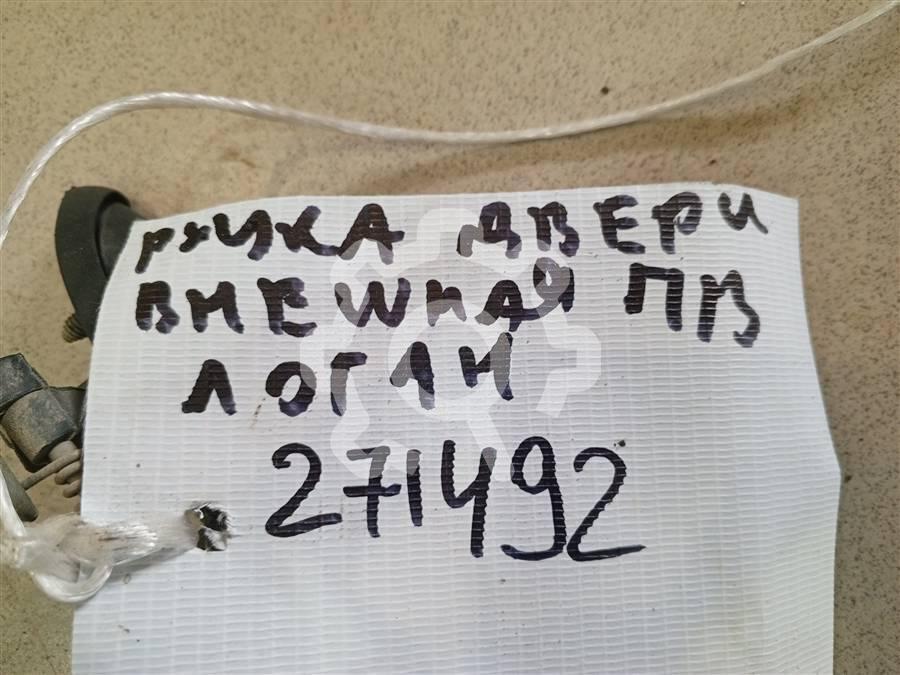 РУЧКА ДВЕРИ
ВНЕШНАЯ ПВ
ЛОГАН
271492